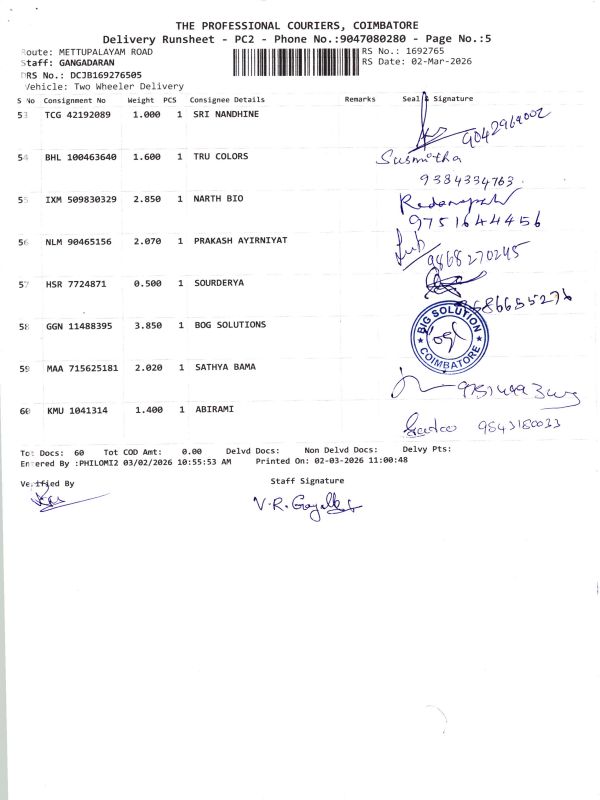 THE PROFESSIONAL COURIERS, COIMBATORE
Delivery Runsheet - PC2 - Phone No.:9047080280 - Page No.:5
Route: METTUPALAYAM ROAD
RS No.: 1692765
Staff: GANGADARAN
RS Date: 02-Mar-2026
DRS No.: DCJB169276505
Vehicle: Two Wheeler Delivery
S No Consignment No Weight PCS Consignee Details Remarks Seal & Signature
53 TCG 42192089 1.000 1 SRI NANDHINE
9042969002
54 BHL 100463640 1.600 1 TRU COLORS Susmitha
9384334763
55 IXM 509830329 2.850 1 NARTH BIO
9751644456
56 NLM 90465156 2.070 1 PRAKASH AYIRNIYAT
9868270245
57 HSR 7724871 0.500 1 SOURDERYA
8686655276
58 GGN 11488395 3.850 1 BOG SOLUTIONS BIG SOLUTION COIMBATORE
59 MAA 715625181 2.020 1 SATHYA BAMA
60 KMU 1041314 1.400 1 ABIRAMI 9843180033
Tot Docs: 60 Tot COD Amt: 0.00 Delvd Docs: Non Delvd Docs: Delvy Pts:
Entered By :PHILOMI2 03/02/2026 10:55:53 AM Printed On: 02-03-2026 11:00:48
Verified By Staff Signature
V.R.